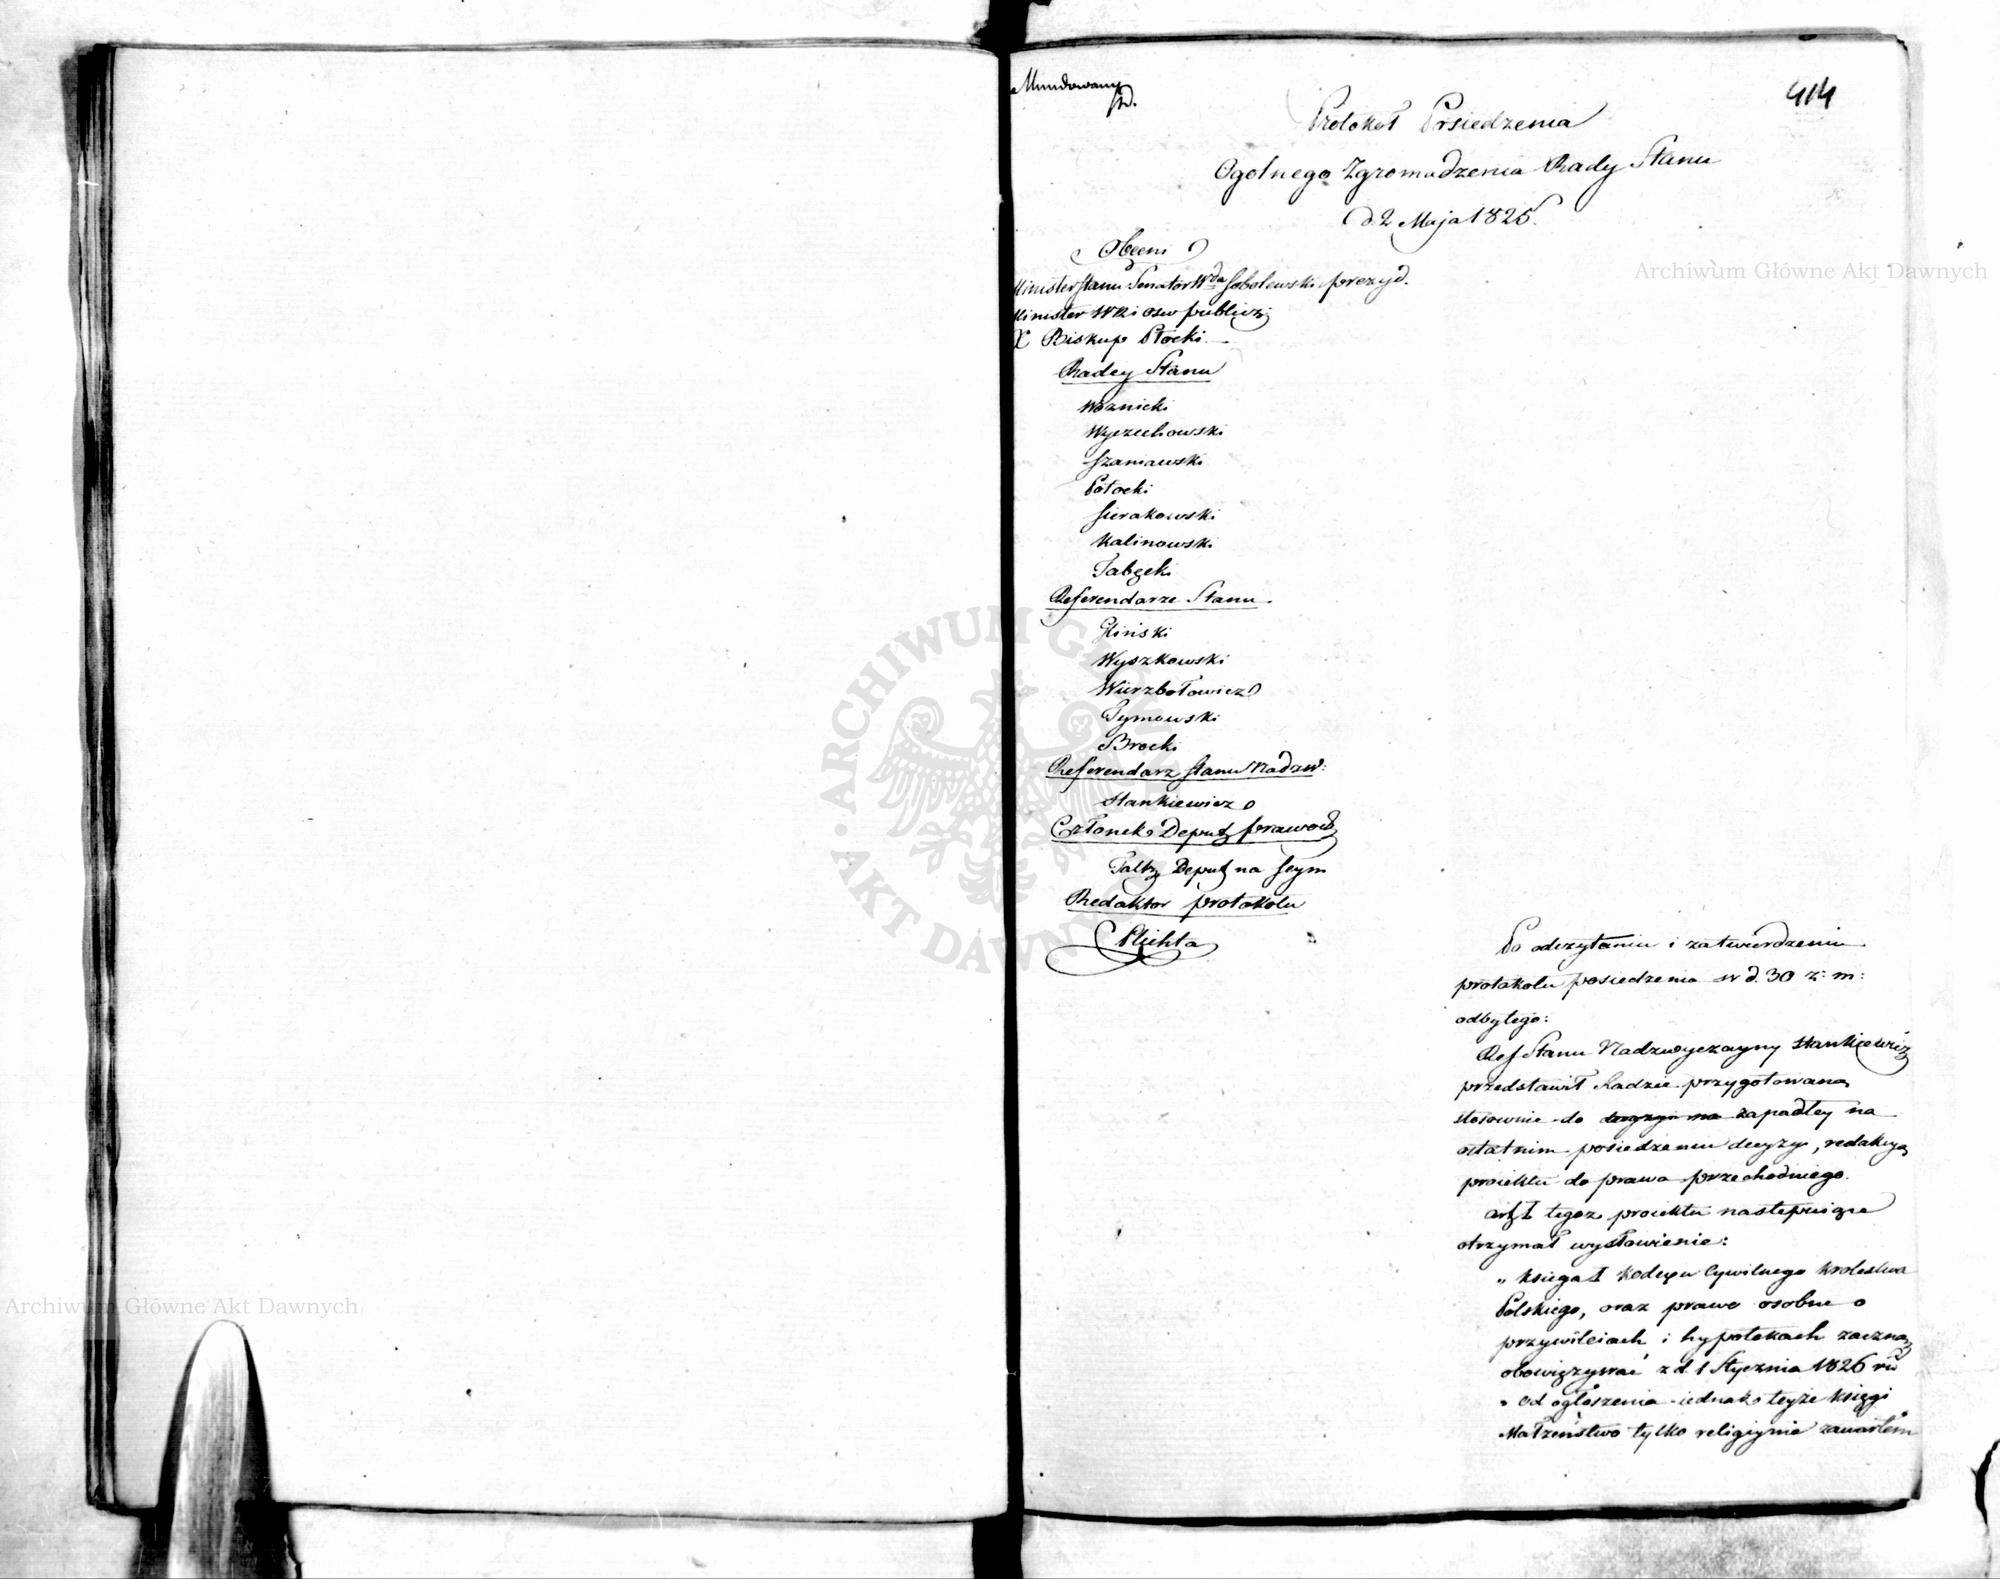 Mundowany
414
Protokół Posiedzenia
Ogolnego Zgromadzenia Rady Stanu
d. 2 Maja 1825.
Obecni
Minister Stanu Senator Wda Sobolewski prezyd.
Minister WR i Osw publicz:
X Biskup Płocki.
Radcy Stanu
Woznicki
Wyczechowski
Szaniawski
Potocki
Sierakowski
Kalinowski
Tabęcki
Referendarze Stanu
Gliński
Wyszkowski
Wierzbołowicz
Tymowski
Brocki
Referendarz Stanu Nadzw:
Stankiewicz
Członek Deput prawod
Faltz Deput na Seym
Redaktor protokolu
Plichta
Po odczytaniu i zatwierdzeniu
protokolu posiedzenia w d. 30 z: m:
odbytego:
Ref Stanu Nadzwyczayny Stankiewicz
przedstawił Radzie przygotowaną
stosownie do zapadłey na
ostatnim posiedzeniu decyzyi, redakcyą
proiektu do prawa przechodniego.
art I tegoz proiektu nastepuiące
otrzymał wysłowienie:
„ Księga I Kodexu Cywilnego Krolestwa
Polskiego, oraz prawo osobne o
przywileiach i hypotekach zaczną
obowięzywać z d. 1 Stycznia 1826 r.
„ Od ogłoszenia iednak teyże księgi
Małżeństwo tylko religiynie zawartem
Archiwum Główne Akt Dawnych
Archiwum Główne Akt Dawnych
ARCHIWUM GŁÓWNE AKT DAWNYCH